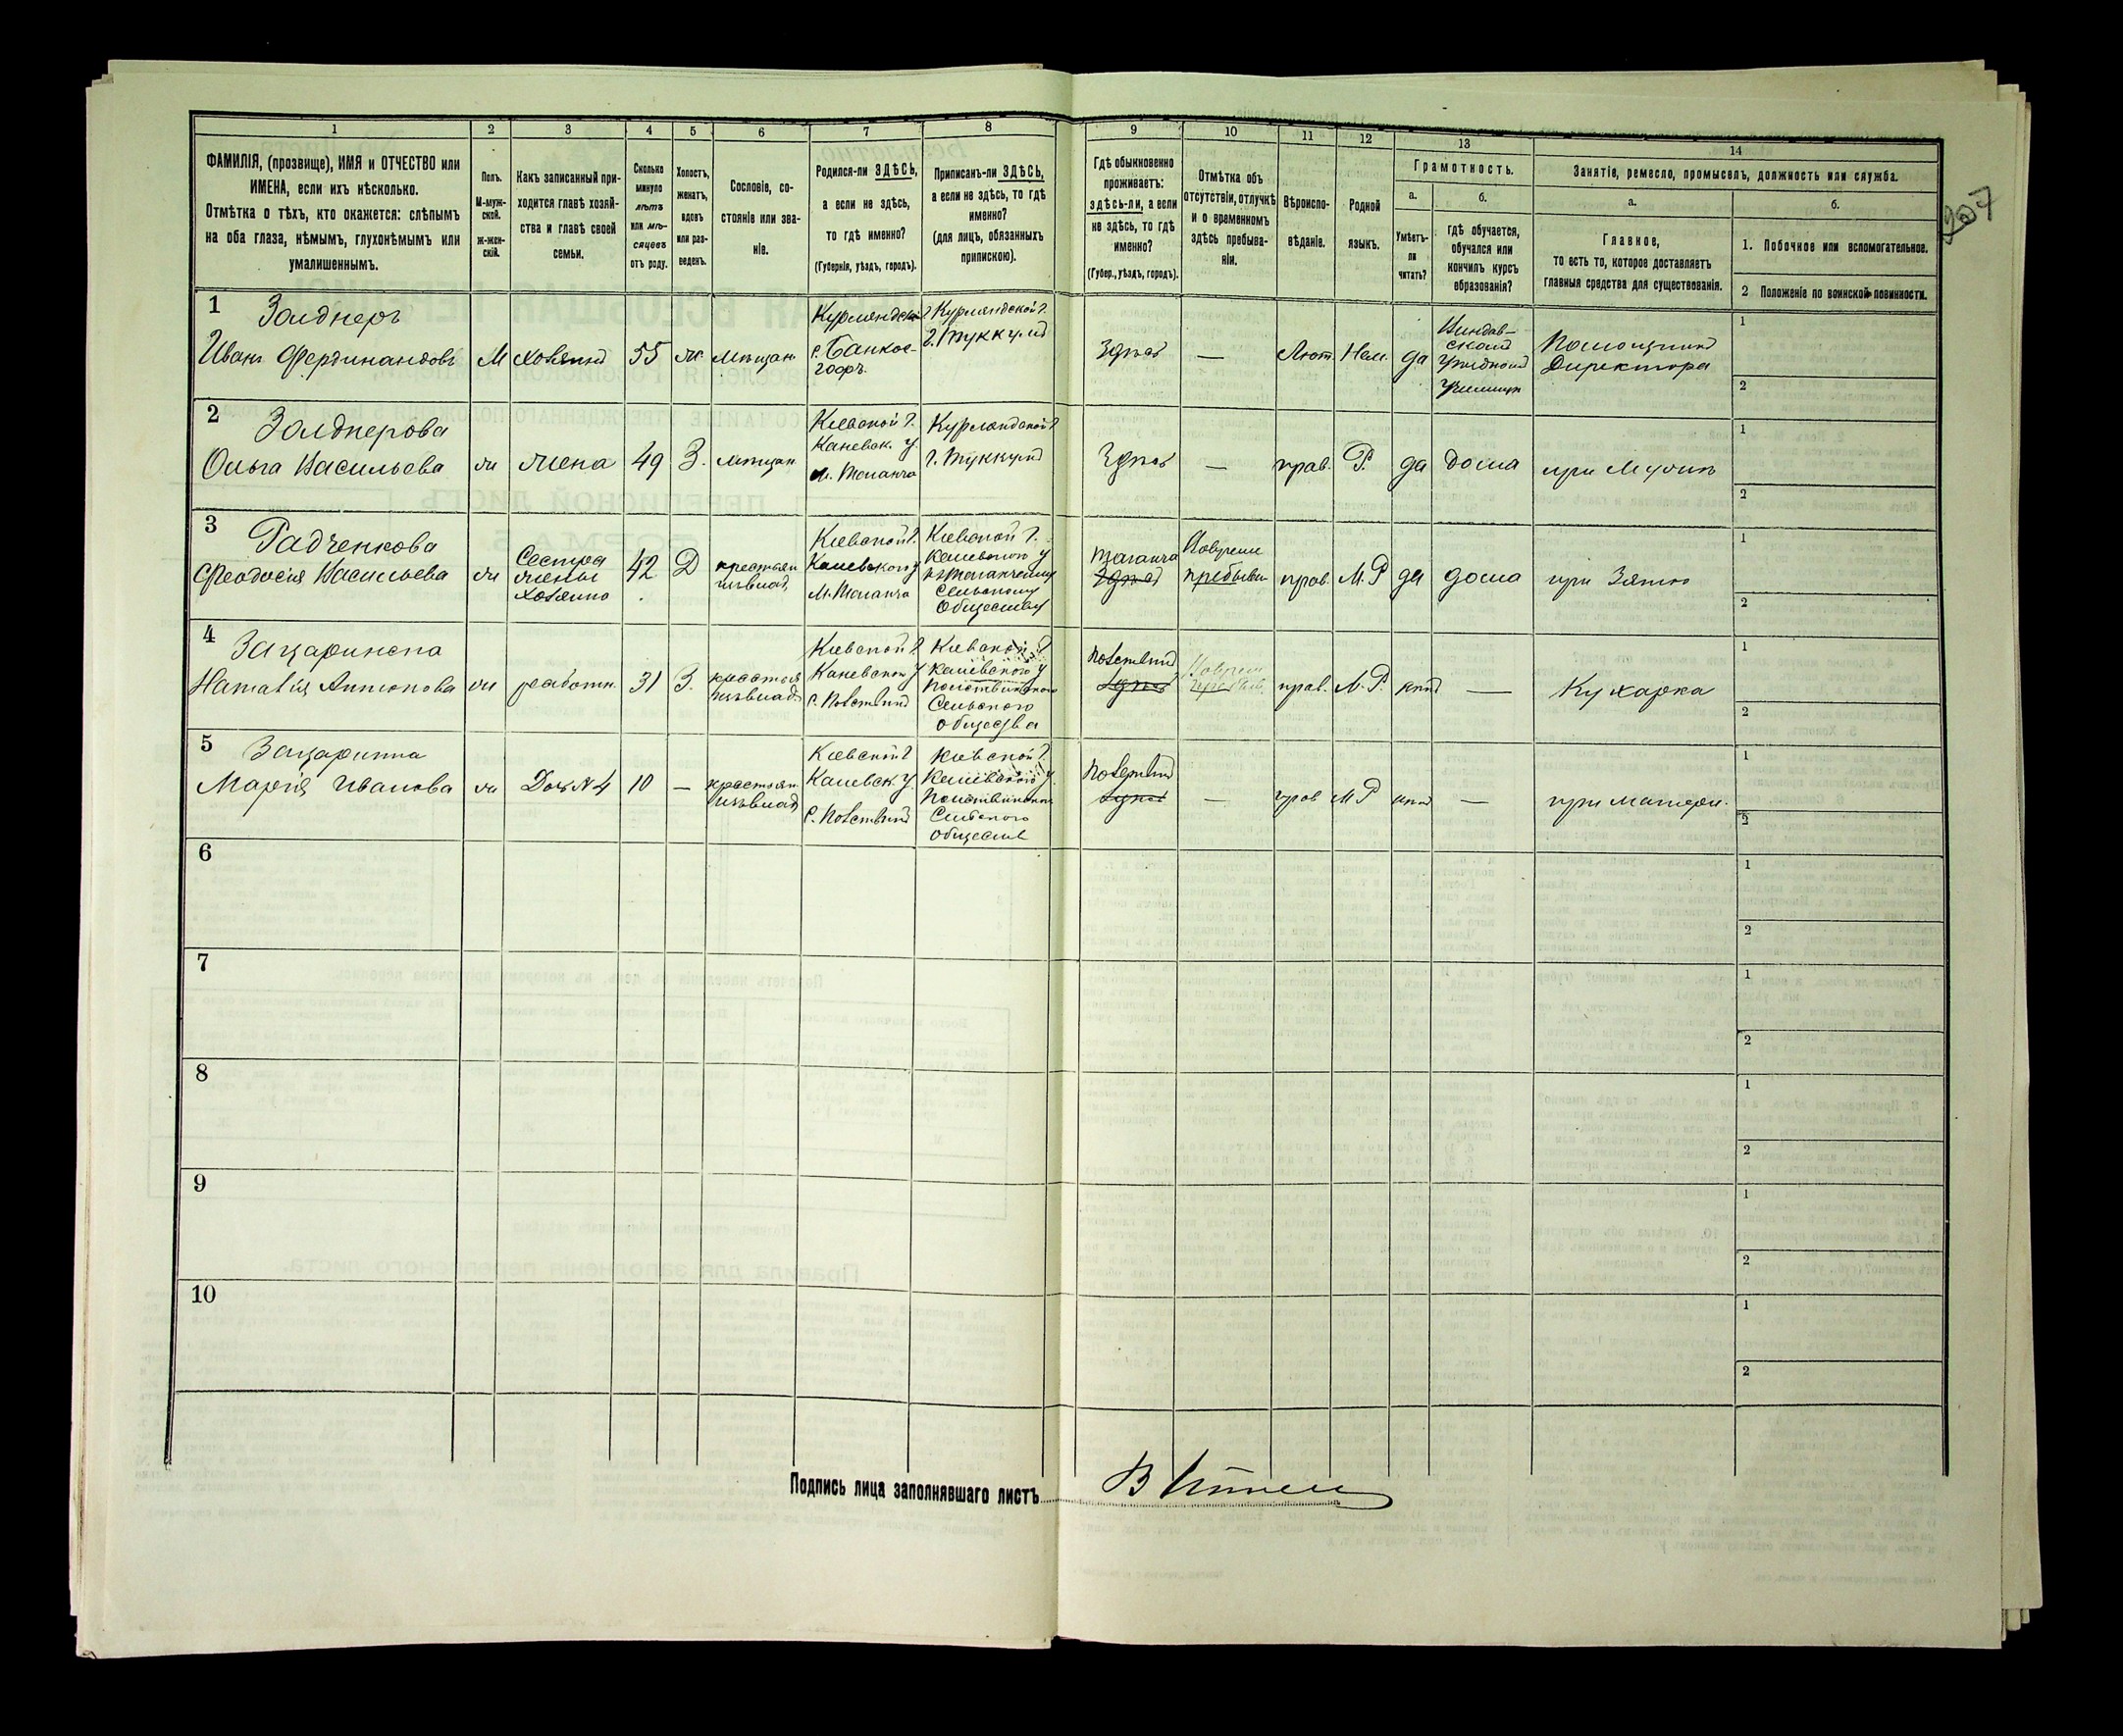 1 2 3 4 5 6 7 8 9 10 11 12 13 14
ФАМИЛІЯ, (прозвище), ИМЯ и ОТЧЕСТВО или
ИМЕНА, если ихъ нѣсколько.
Отмѣтка о тѣхъ, кто окажется: слѣпымъ
на оба глаза, нѣмымъ, глухонѣмымъ или
умалишеннымъ.
Полъ.
М-муж-
ской.
ж-жен-
скій.
Какъ записанный при-
ходится главѣ хозяй-
ства и главѣ своей
семьи.
Сколько
минуло
лѣтъ
или мѣ-
сяцевъ
отъ роду.
Холостъ,
женатъ,
вдовъ
или раз-
веденъ.
Сословіе, со-
стояніе или зва-
ніе.
Родился-ли ЗДѢСЬ,
а если не здѣсь,
то гдѣ именно?
(Губернія, уѣздъ, городъ).
Приписанъ-ли ЗДѢСЬ,
а если не здѣсь, то гдѣ
именно?
(для лицъ, обязанныхъ
припискою).
Гдѣ обыкновенно
проживаетъ:
здѣсь-ли, а если
не здѣсь, то гдѣ
именно?
(Губер., уѣздъ, городъ).
Отмѣтка объ
отсутствіи, отлучкѣ
и о временномъ
здѣсь пребыва-
ніи.
Вѣроиспо-
вѣданіе.
Родной
языкъ.
Грамотность.
а.
Умѣетъ-
ли
читать?
б.
гдѣ обучается,
обучался или
кончилъ курсъ
образованія?
Занятіе, ремесло, промыселъ, должность или служба.
а.
Главное,
то есть то, которое доставляетъ
главныя средства для существованія.
б.
1. Побочное или вспомогательное.
2 Положеніе по воинской повинности.
207
1 Залднеръ
Иванъ Фердинандовъ
М
Хозяинъ
55
ж.
Мѣщан
Курляндской г.
Курляндской г.
г. Туккумъ
Здѣсь
—
Лют.
Нем.
да
Виндав-
ском
Уѣздном
Училищѣ
Помощникъ
Директора
1
2
2 Залднерова
Ольга Васильева
ж
жена
49
З.
мѣщан
Кіевской г.
Каневск. у.
м. Таганча
Курляндской г.
г. Туккумъ
Здѣсь
—
прав.
Р.
да
дома
при Мужѣ
1
2
3 Радченкова
Феодосія Васильева
ж
Сестра
жены
хозяина
42
Д
крестьян
Кіевской г.
Каневского у
м. Таганча
Кіевской г.
Каневского у
Сельскому
Обществу
Таганча
Здѣсь
пребыван
прав.
М.Р
да
дома
при Зятю
1
2
4
Наталія Антонова
ж
работн.
31
З.
Кіевской г.
Каневского у
Кіевской г.
Каневского у
Сельского
общества
Здѣсь
прав.
М.Р.
—
Кухарка
1
2
5
Марія Иванова
ж
Дочь N 4
10
—
крестьян.
Кіевской г
Каневск. у.
Кіевской г.
Каневского у.
Сельского
Здѣсь
—
прав
М Р
—
при матери.
1
2
6
1
2
7
1
2
8
1
2
9
1
2
10
1
2
Подпись лица заполнявшаго листъ